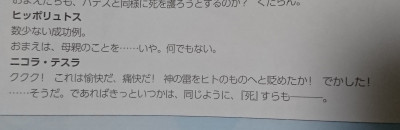 おまえたちも、ハデスと同様に死を護ろうとするのか? くだらん。
ヒッポリュトス
数少ない成功例。
おまえは、母親のことを……いや。何でもない。
ニコラ・テスラ
ククク! これは愉快だ、痛快だ! 神の雷をヒトのものへと貶めたか! でかした!
……そうだ。であればきっといつかは、同じように、『死』すらも———。